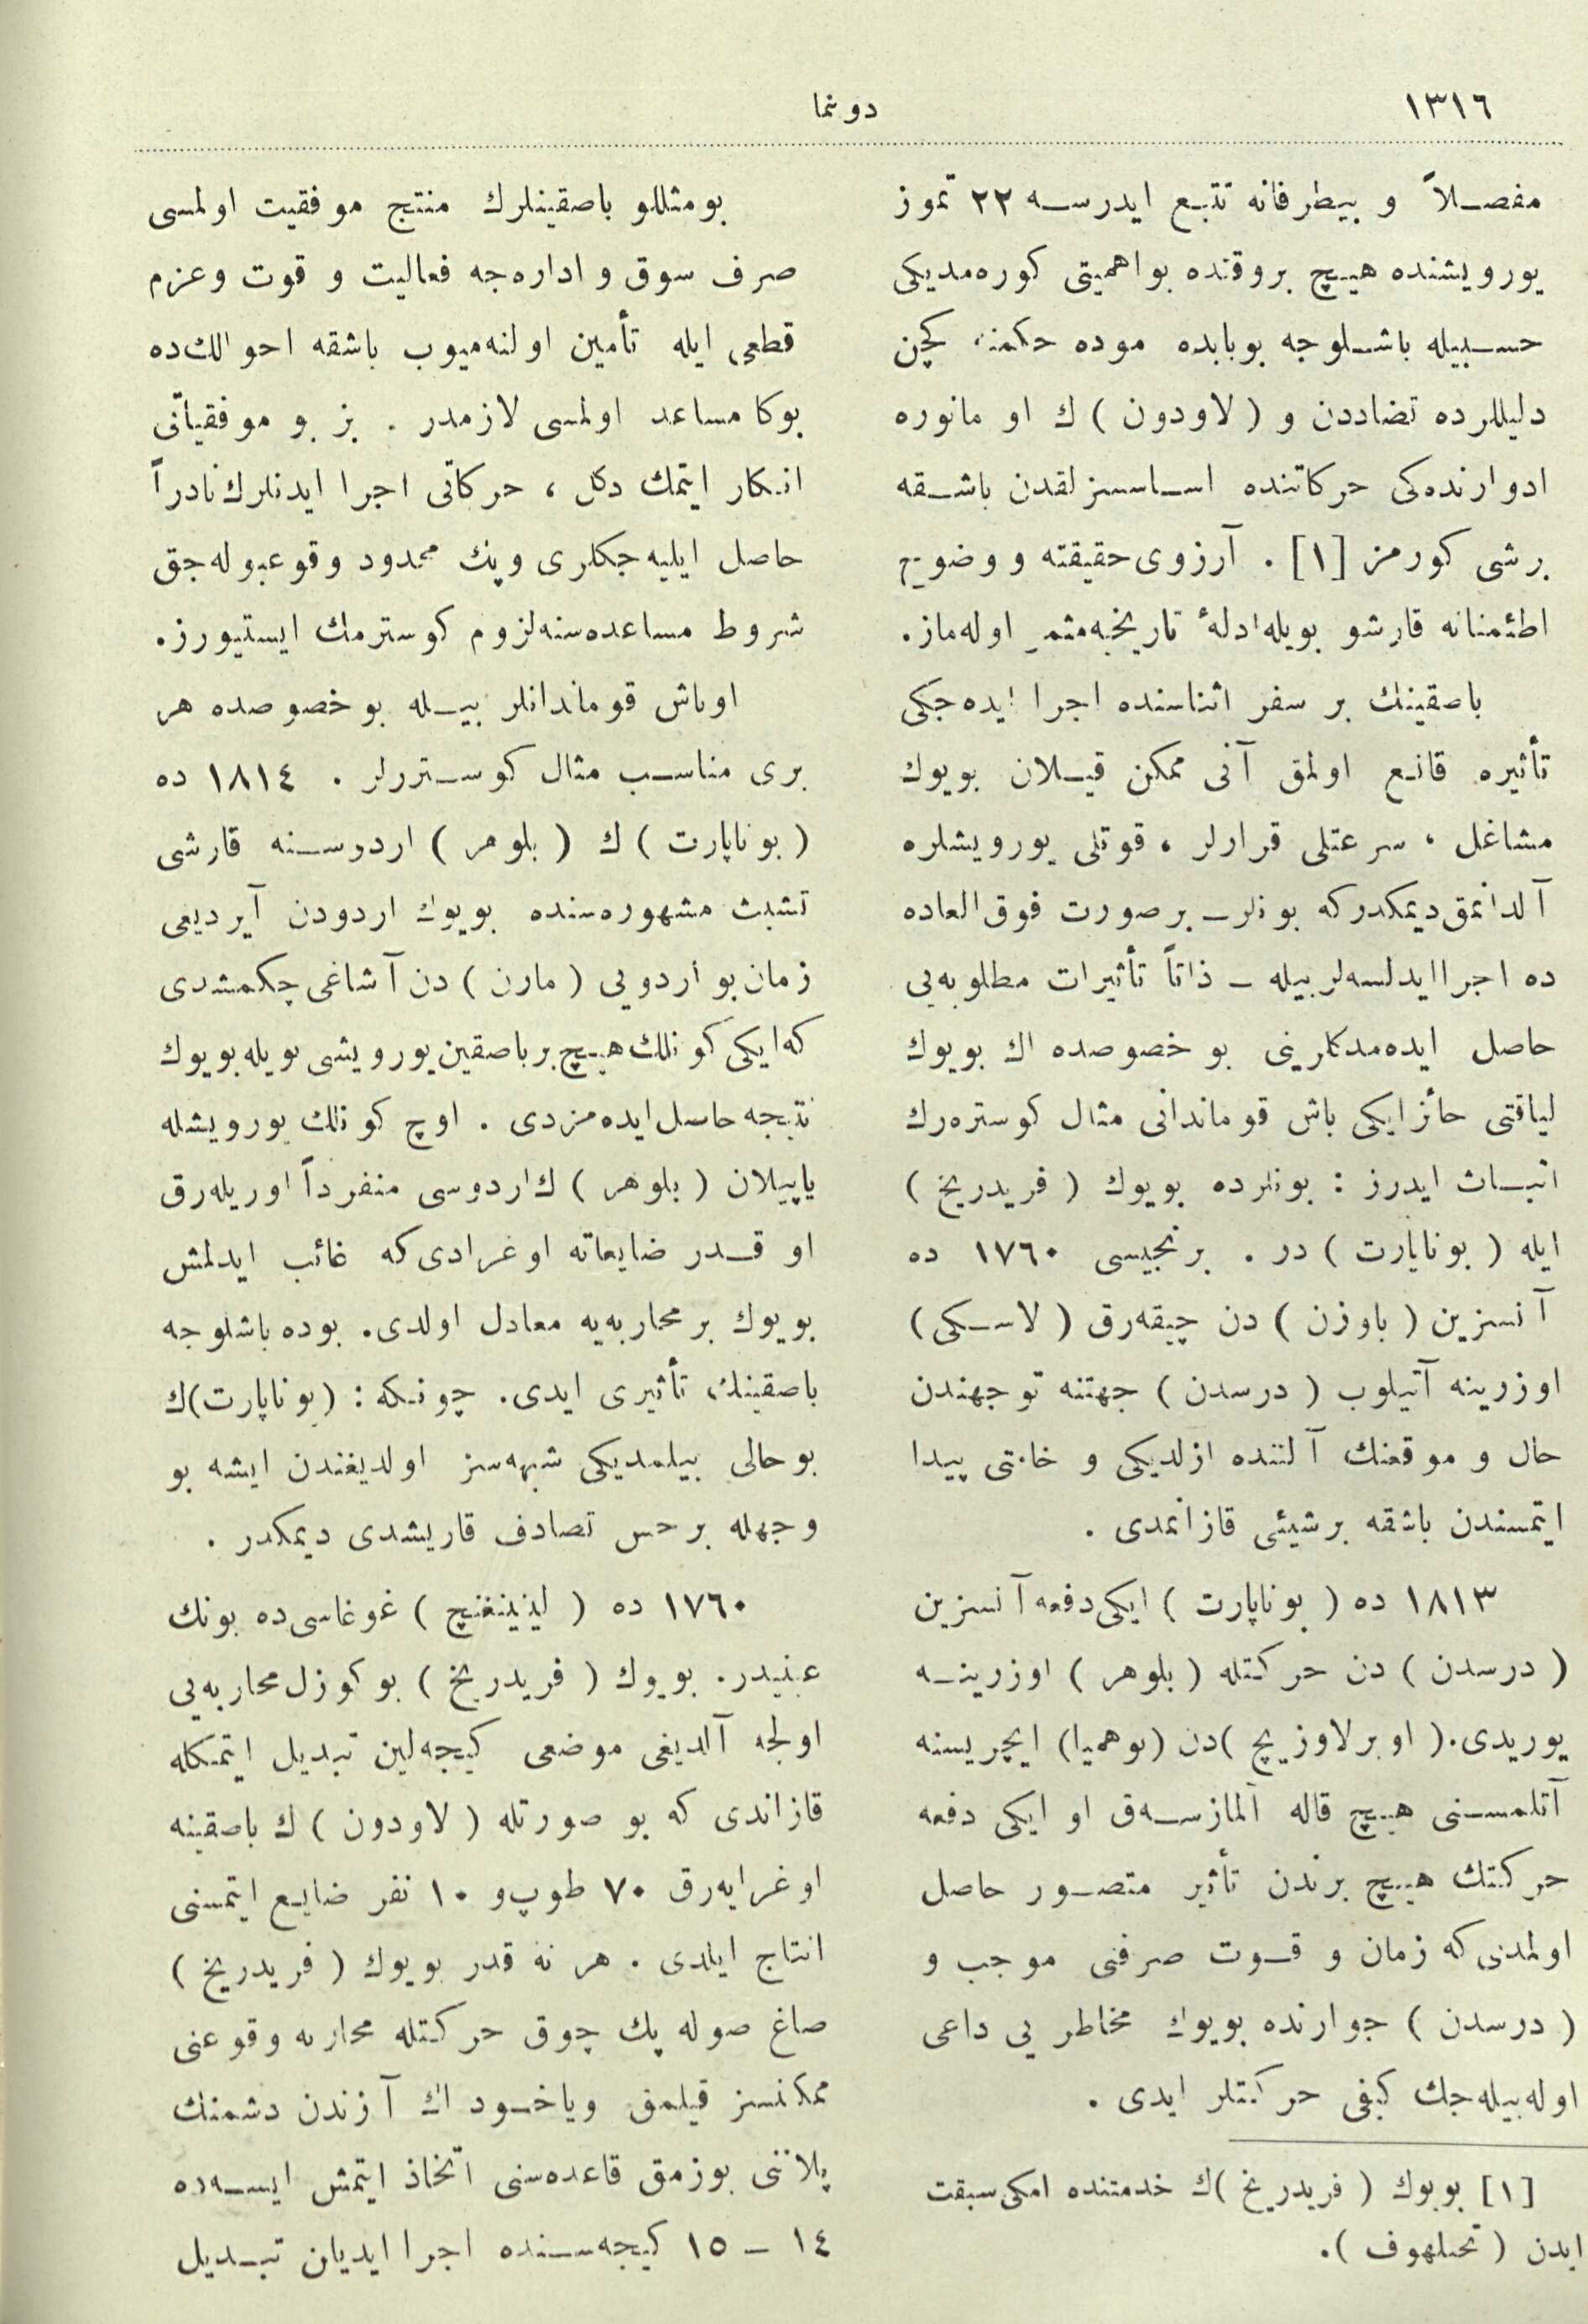 ١٣١٦
دونما
مفصلاً و بیطرفانه تتبع ایدرسه ٢٢ تموز
یورویشنده هیچ بروقنده بواهمیتی كوره‌مدیكی
حسبیله باشلوجه بوبابده موده حكمنه كچن
دلیللرده تضاددن و ( لاودون ) ك او مانوره
ادوارنده‌كی حركاتنده اساسسزلقدن باشقه
برشی كورمز [١] . آرزوی حقیقته و وضوح
اطئمنانه قارشو بویله ادلۀ تاریخیه مثمر اوله‌ماز.
باصقینك بر سفر اثناسنده اجرا ایده‌جكی
تأثیره قانع اولمق آنی ممكن قیلان بویوك
مشاغل ، سرعتلی قرارلر ، قوتلی یورویشلره
آلدانمق دیمكدركه بونلر ـ برصورت فوق العاده
ده اجرا ایدلسه‌لر بیله ـ ذاتاً تأثیرات مطلوبه‌یی
حاصل ایده‌مدكلرینی بو خصوصده اك بویوك
لیاقتی حائز ایكی باش قوماندانی مثال كوستره‌رك
اثبات ایدرز : بونلرده بویوك ( فریدریخ )
ایله ( بوناپارت ) در . برنجیسی ١٧٦٠ ده
آنسزین ( باوزن ) دن چیقه‌رق ( لاسكی )
اوزرینه آتیلوب ( درسدن ) جهتنه توجهندن
حال و موقعنك آلتنده ازلدیكی و خانتی پیدا
ایتمسندن باشقه برشیئی قازانمدی .
١٨١٣ ده ( بوناپارت ) ایكی دفعه آنسزین
( درسدن ) دن حركتله ( بلوهر ) اوزرینه
یوریدی. ( اوبرلاوزیچ ) دن (بوهمیا) ایچریسنه
آتلمسنی هیچ قاله آلمازسه‌ق او ایكی دفعه
حركتك هیچ برندن تأثیر متصور حاصل
اولمدی كه زمان و قوت صرفنی موجب و
( درسدن ) جوارنده بویوك مخاطره‌یی داعی
اوله‌بیله‌جك كیفی حركتلر ایدی .
[١] بویوك ( فریدریخ )ك خدمتنده امكی سبقت
ایدن ( تمپلهوف ).
بومثللو باصقینلرك منتج موفقیت اولمسی
صرف سوق و اداره‌جه فعالیت و قوت وعزم
قطعی ایله تأمین اولنه‌میوب باشقه احوالك‌ده
بوكا مساعد اولمسی لازمدر . بز بو موفقیاتی
انكار ایتمك دكل ، حركاتی اجرا ایدنلرك نادراً
حاصل ایلیه‌جكلری وپك محدود وقوعبوله‌جق
شروط مساعده‌سنه لزوم كوسترمك ایستیورز.
اوباش قوماندانلر بیله بو خصوصده هر
بری مناسب مثال كوسترلر . ١٨١٤ ده
( بوناپارت ) ك ( بلوهر ) اردوسنه قارشی
تشبث مشهوره‌سنده بویوك اردودن آیردیغی
زمان بو اردویی ( مارن ) دن آشاغی چكمشدی
كه ایكی كونلك هیچ برباصقین یورویشی بویله بویوك
نتیجه حاسل ایده‌مزدی . اوچ كونلك یورویشله
یاپیلان ( بلوهر ) ك اردوسی منفرداً اوریله‌رق
او قدر ضایعاته اوغرادی كه غائب ایدلمش
بویوك بر محاربه‌یه معادل اولدی. بوده باشلوجه
باصقینك تأثیری ایدی. چونكه : (بوناپارت)ك
بوحالی بیلمدیكی شبهه‌سز اولدیغندن ایشه بو
وجهله برحس تصادف قاریشدی دیمكدر .
١٧٦٠ ده ( لیذینغنچ ) غوغاسی ده بونك
عینیدر. بویوك ( فریدریخ ) بو كوزل محاربه‌یی
اولجه آلدیغی موضعی كیجه‌لین تبدیل ایتمكله
قازاندی كه بو صورتله ( لاودون ) ك باصقینه
اوغرایه‌رق ٧٠ طوپ و ١٠ نفر ضایع ایتمسنی
انتاج ایلدی . هر نه قدر بویوك ( فریدریخ )
صاغ صوله پك چوق حركتله محاربه وقوعنی
ممكنسز قیلمق ویاخود اك آزندن دشمنك
پلاننی بوزمق قاعده‌سنی اتخاذ ایتمش ایسه‌ده
١٤ ـ ١٥ كیجه‌سنده اجرا ایدیان تبدیل